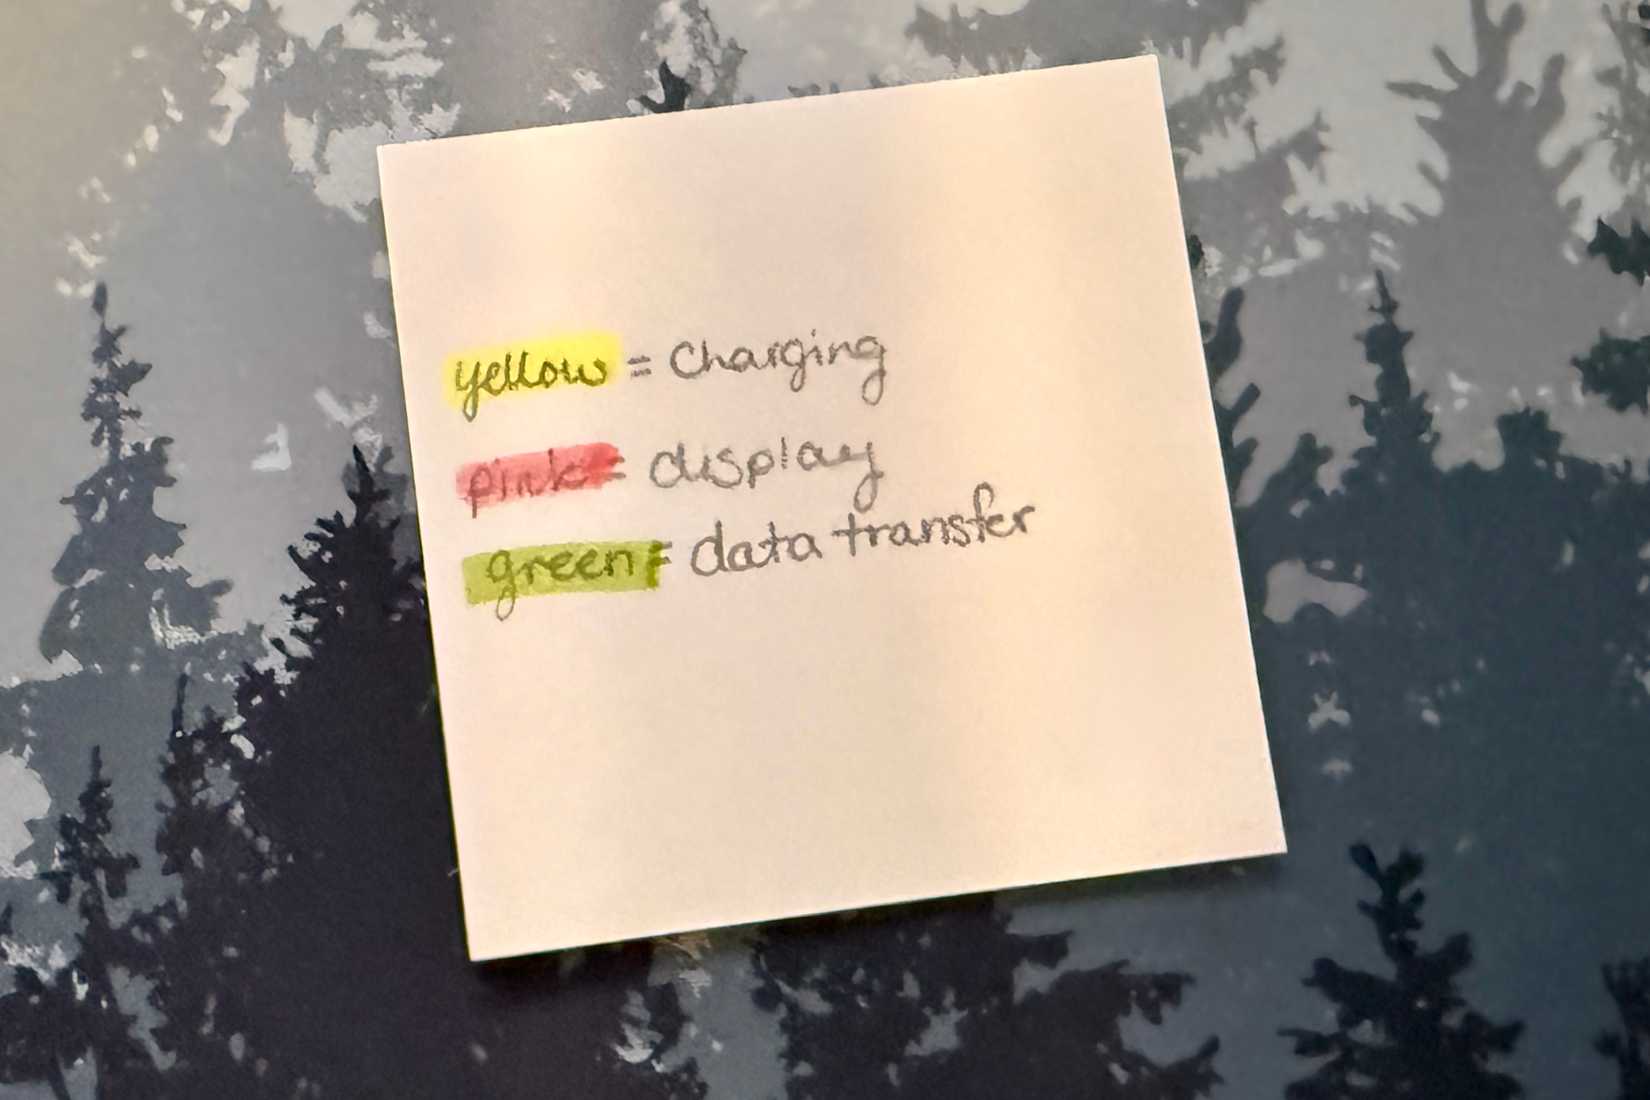 yellow = Charging
pink = display
green = data transfer